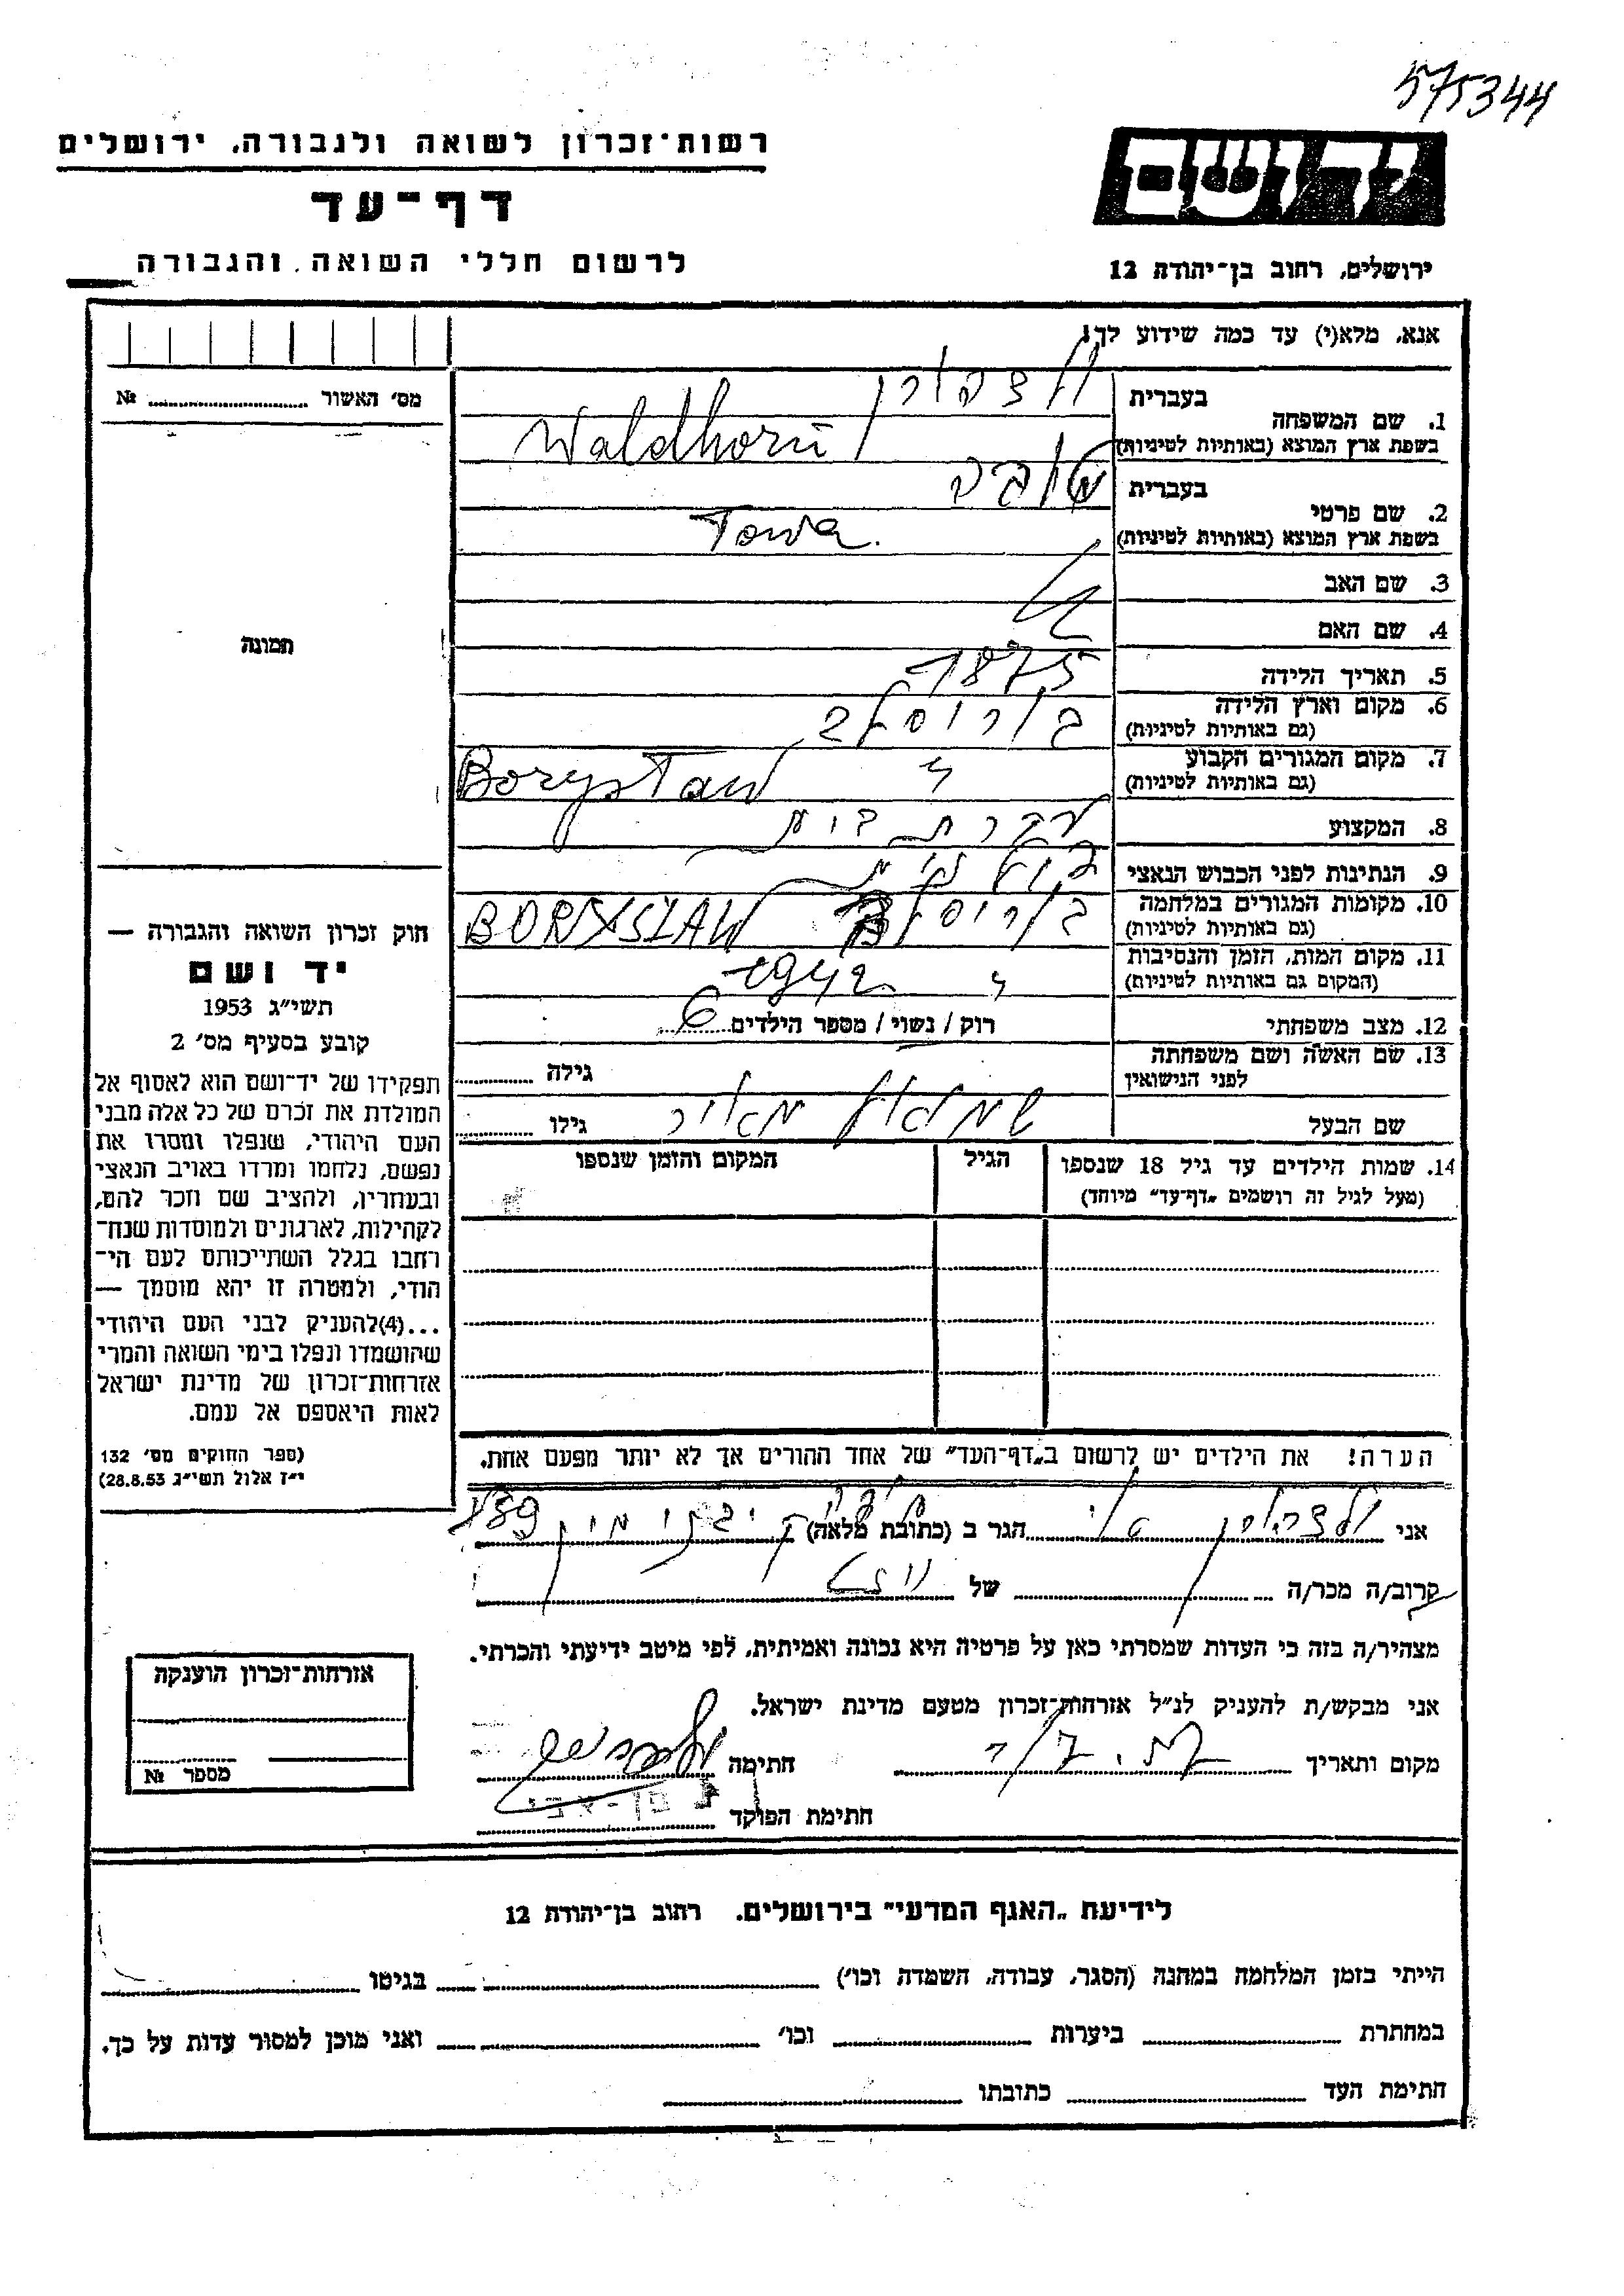 575344
יד ושם
רשות־זכרון לשואה ולגבורה, ירושלים
דף־עד
לרשום חללי השואה והגבורה
ירושלים, רחוב בן־יהודה 12
אנא, מלא(י) עד כמה שידוע לך!
מס׳ האשור № ........
1. שם המשפחה בעברית ולדהורן
בשפת ארץ המוצא (באותיות לטיניות) Waldhorn
2. שם פרטי בעברית טובה
בשפת ארץ המוצא (באותיות לטיניות) Towa.
3. שם האב
4. שם האם
5. תאריך הלידה 1875
6. מקום וארץ הלידה (גם באותיות לטיניות) בוריסלב
7. מקום המגורים הקבוע (גם באותיות לטיניות) " Borysław
8. המקצוע עקרת בית
9. הנתינות לפני הכבוש הנאצי פולנית
10. מקומות המגורים במלחמה (גם באותיות לטיניות) בוריסלב BORYSLAW
11. מקום המות, הזמן והנסיבות (המקום גם באותיות לטיניות) " 1942
12. מצב משפחתי רוק / נשוי / מספר הילדים 6
13. שם האשה ושם משפחתה לפני הנישואין גילה
שם הבעל שמואל מאיר גילו
14. שמות הילדים עד גיל 18 שנספו (מעל לגיל זה רושמים „דף־עד" מיוחד) הגיל המקום והזמן שנספו
הערה! את הילדים יש לרשום ב„דף־העד" של אחד ההורים אך לא יותר מפעם אחת.
תמונה
חוק זכרון השואה והגבורה —
יד ושם
תשי״ג 1953
קובע בסעיף מס׳ 2
תפקידו של יד־ושם הוא לאסוף אל
המולדת את זכרם של כל אלה מבני
העם היהודי, שנפלו ומסרו את
נפשם, נלחמו ומרדו באויב הנאצי
ובעוזריו, ולהציב שם וזכר להם,
לקהילות, לארגונים ולמוסדות שנח־
רבו בגלל השתייכותם לעם הי־
הודי, ולמטרה זו יהא מוסמך —
...(4) להעניק לבני העם היהודי
שהושמדו ונפלו בימי השואה והמרי
אזרחות־זכרון של מדינת ישראל
לאות היאספם אל עמם.
(ספר החוקים מס׳ 132
י״ז אלול תשי״ג 28.8.53)
אני ולדהורן הגר ב (כתובת מלאה)
קרוב/ה מכר/ה של
מצהיר/ה בזה כי העדות שמסרתי כאן על פרטיה היא נכונה ואמיתית, לפי מיטב ידיעתי והכרתי.
אני מבקש/ת להעניק לנ״ל אזרחות־זכרון מטעם מדינת ישראל.
מקום ותאריך חתימה
חתימת הפוקד
אזרחות־זכרון הוענקה
מספר №
לידיעת „האגף המדעי" בירושלים, רחוב בן־יהודה 12
הייתי בזמן המלחמה במחנה (הסגר, עבודה, השמדה וכו׳) בגיטו
במחתרת ביערות וכו׳ ואני מוכן למסור עדות על כך.
חתימת העד כתובתו